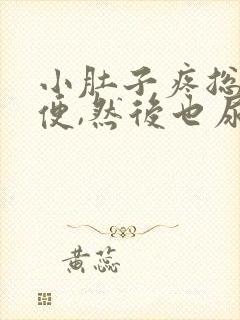 小肚子疼总
便,然後也尿
黄蕊